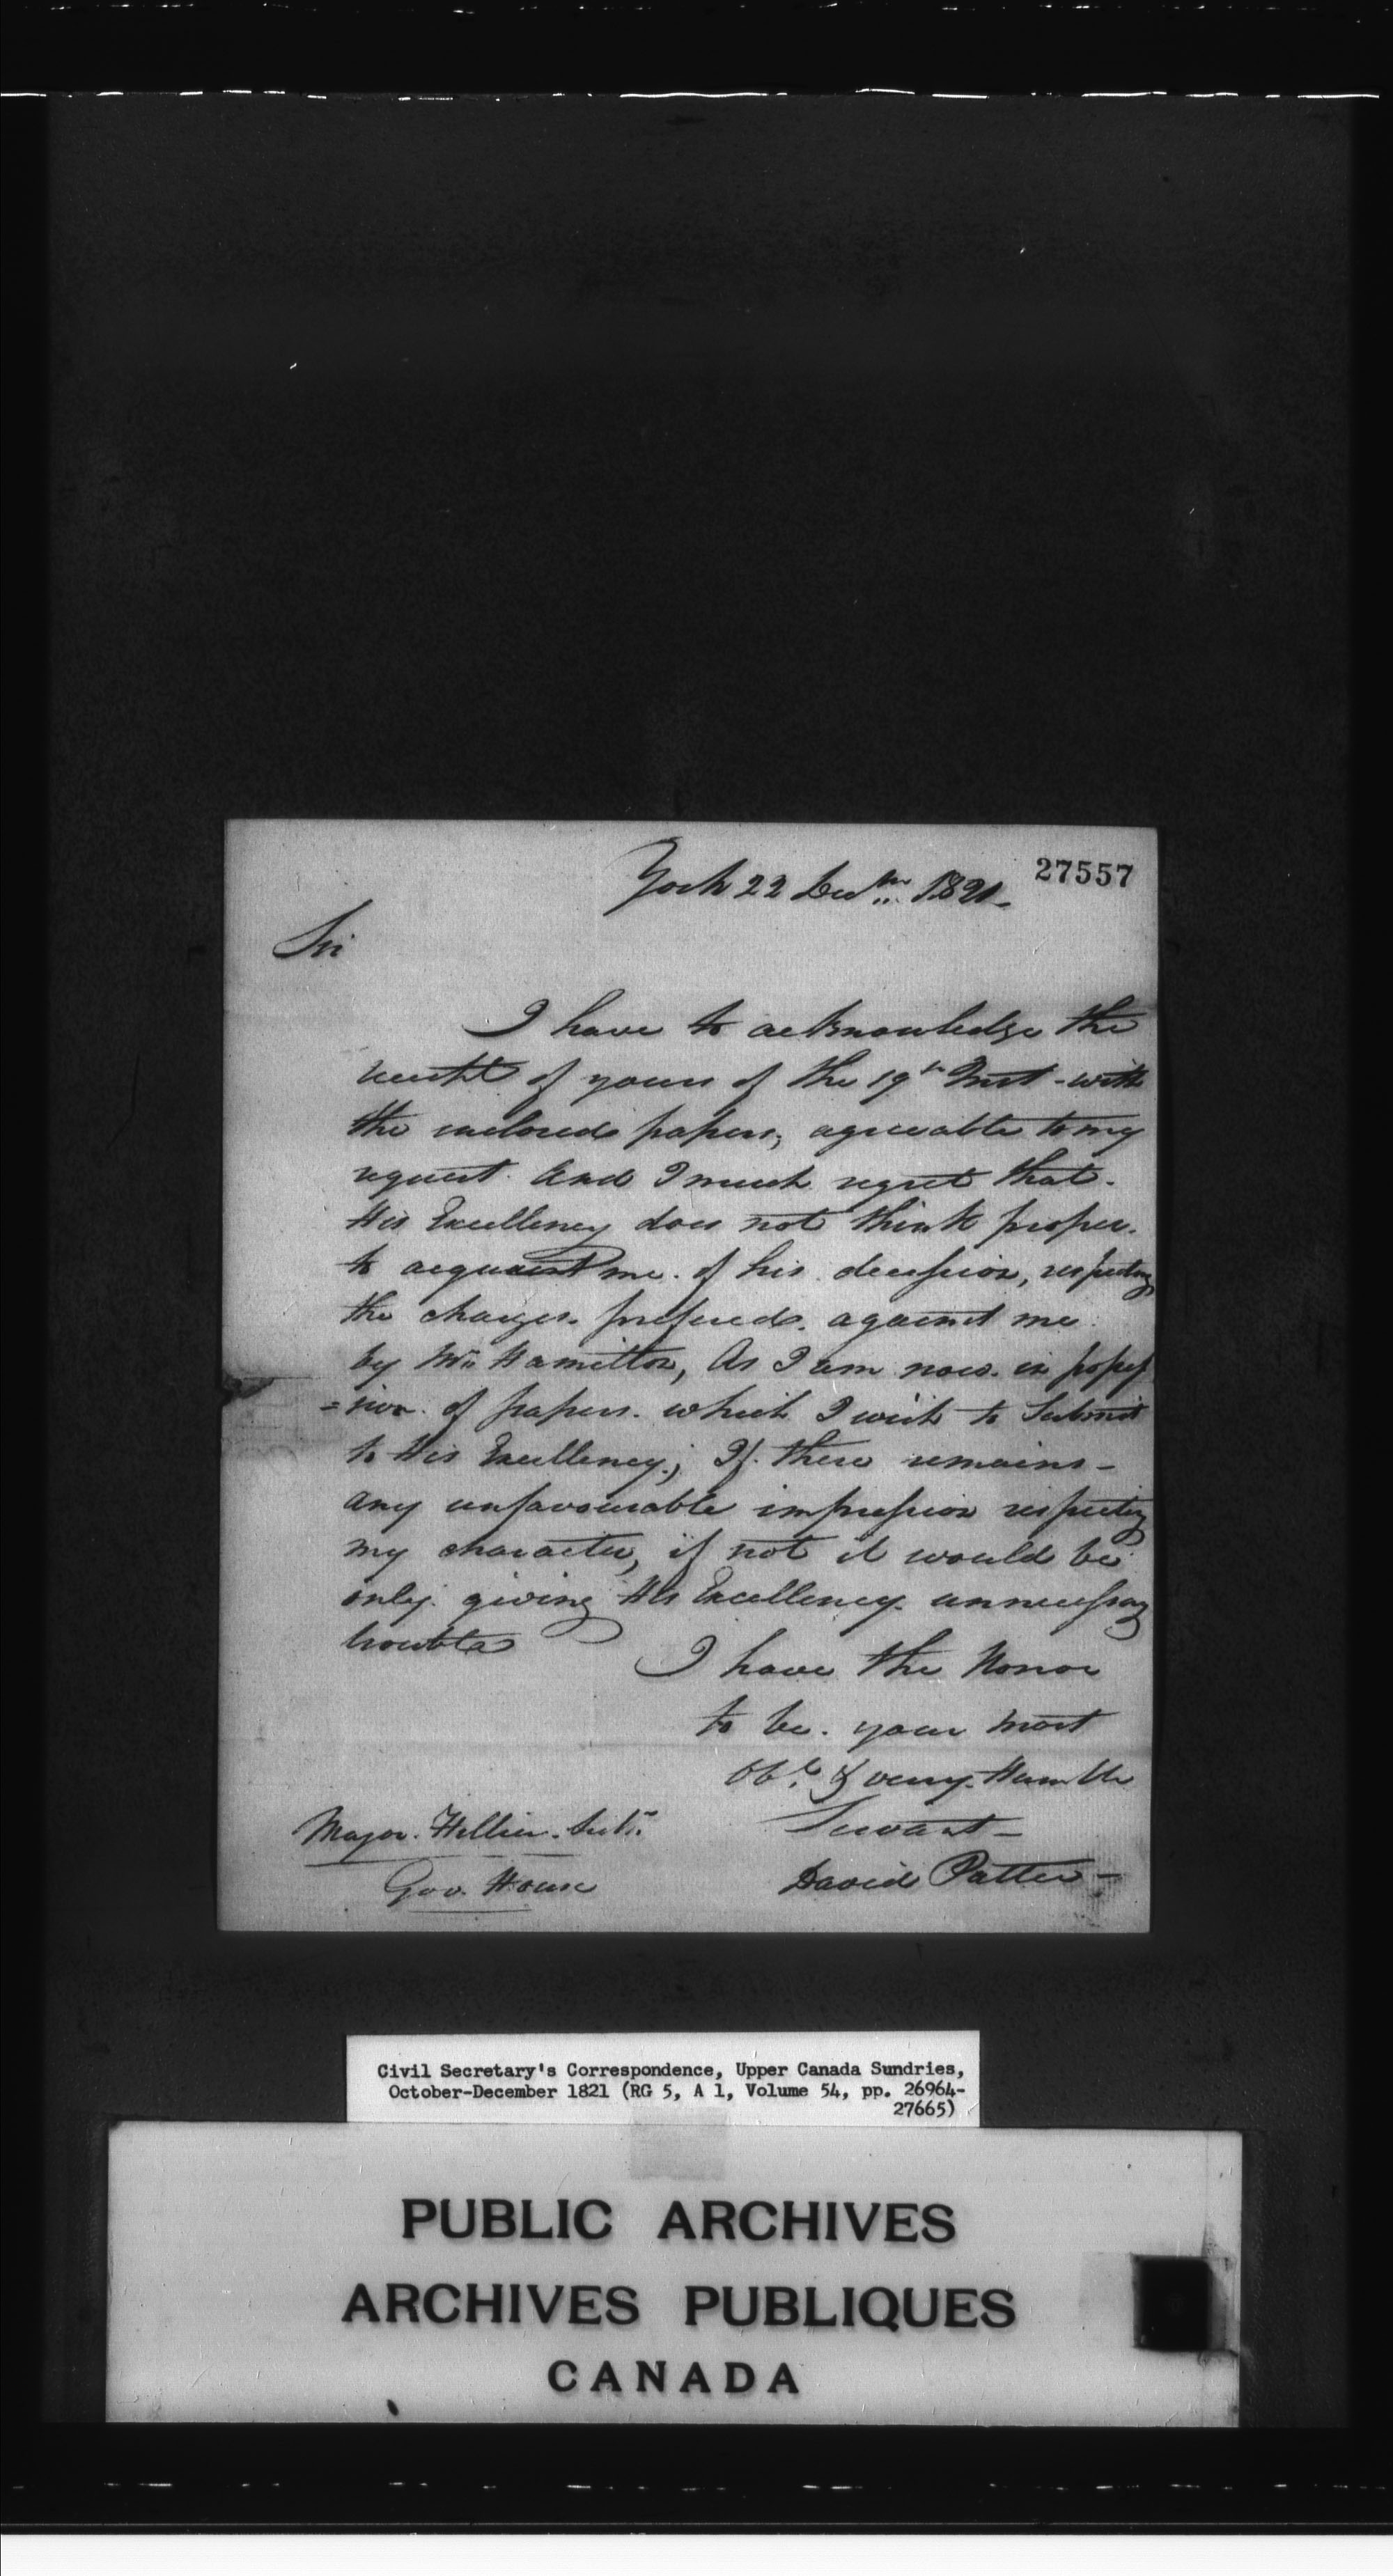 27557
York 22 Decem 1821-
Sir
I have to acknowledge the
receipt of yours of the 19th Inst - with
the inclosed papers, agreeable to my
request. And I much regret that.
His Excellency does not think proper.
to acquaint me. of his decession, respecting
the charges. prefered. against me.
by Wm Hamilton, As I am now. in posses
=sion. of papers. which I wish to Submit
to His Excellency; If. there remains -
any unfavourable impression respecting
my character, if not it would be
only. giving His Excellency. unnecessary
trouble
I have the Honor
to be. your most
Obt. & very. Humble
Servant -
David Pattee -
Major. Hillier. Secty.
Gov. House
Civil Secretary's Correspondence, Upper Canada Sundries,
October-December 1821 (RG 5, A 1, Volume 54, pp. 26964-
27665)
PUBLIC ARCHIVES
ARCHIVES PUBLIQUES
CANADA